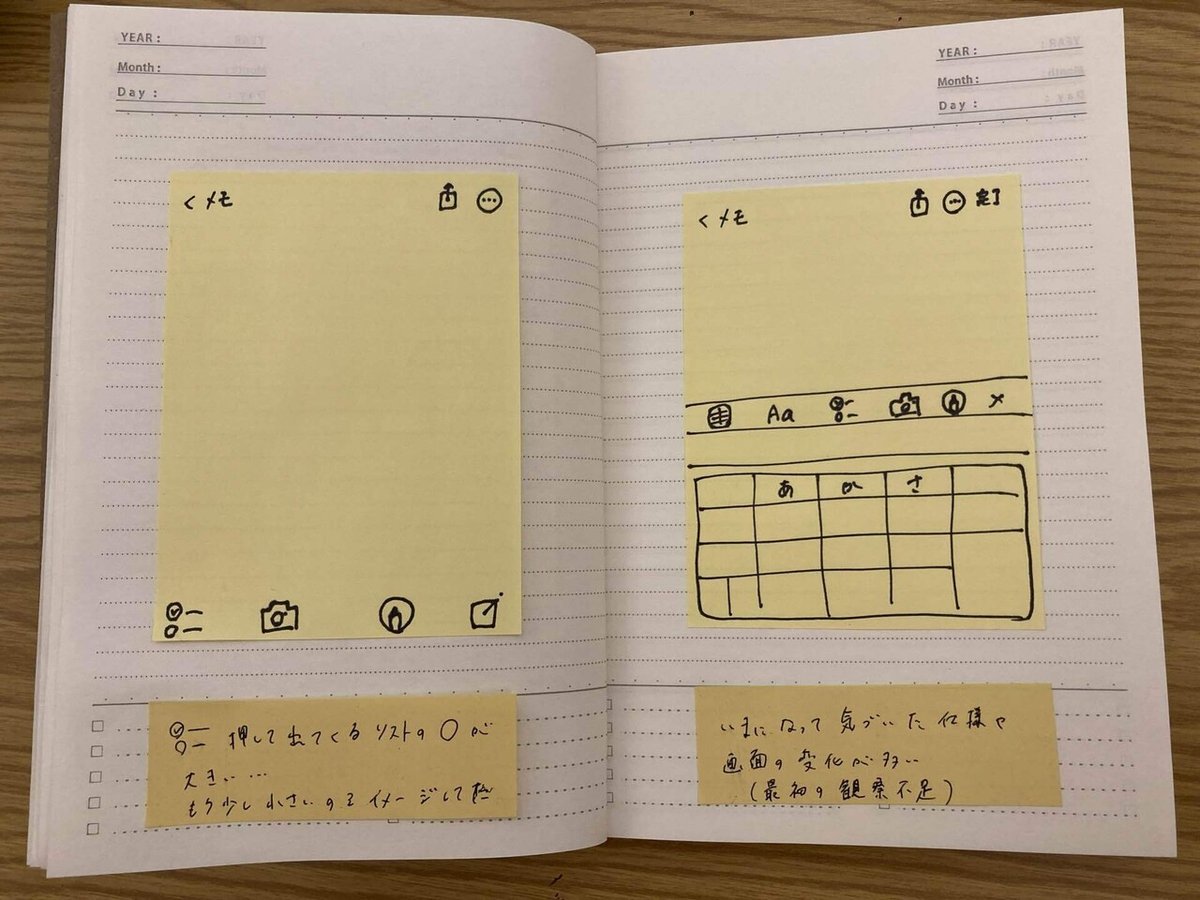 YEAR :
Month :
Day :
< メモ
押して出てくるリストの○が
大きい…
もう少し小さいのをイメージして
YEAR :
Month :
Day :
< メモ 完了
Aa
あ か さ
いまになって気づいた仕様や
画面の変化が多い
(最初の観察不足)